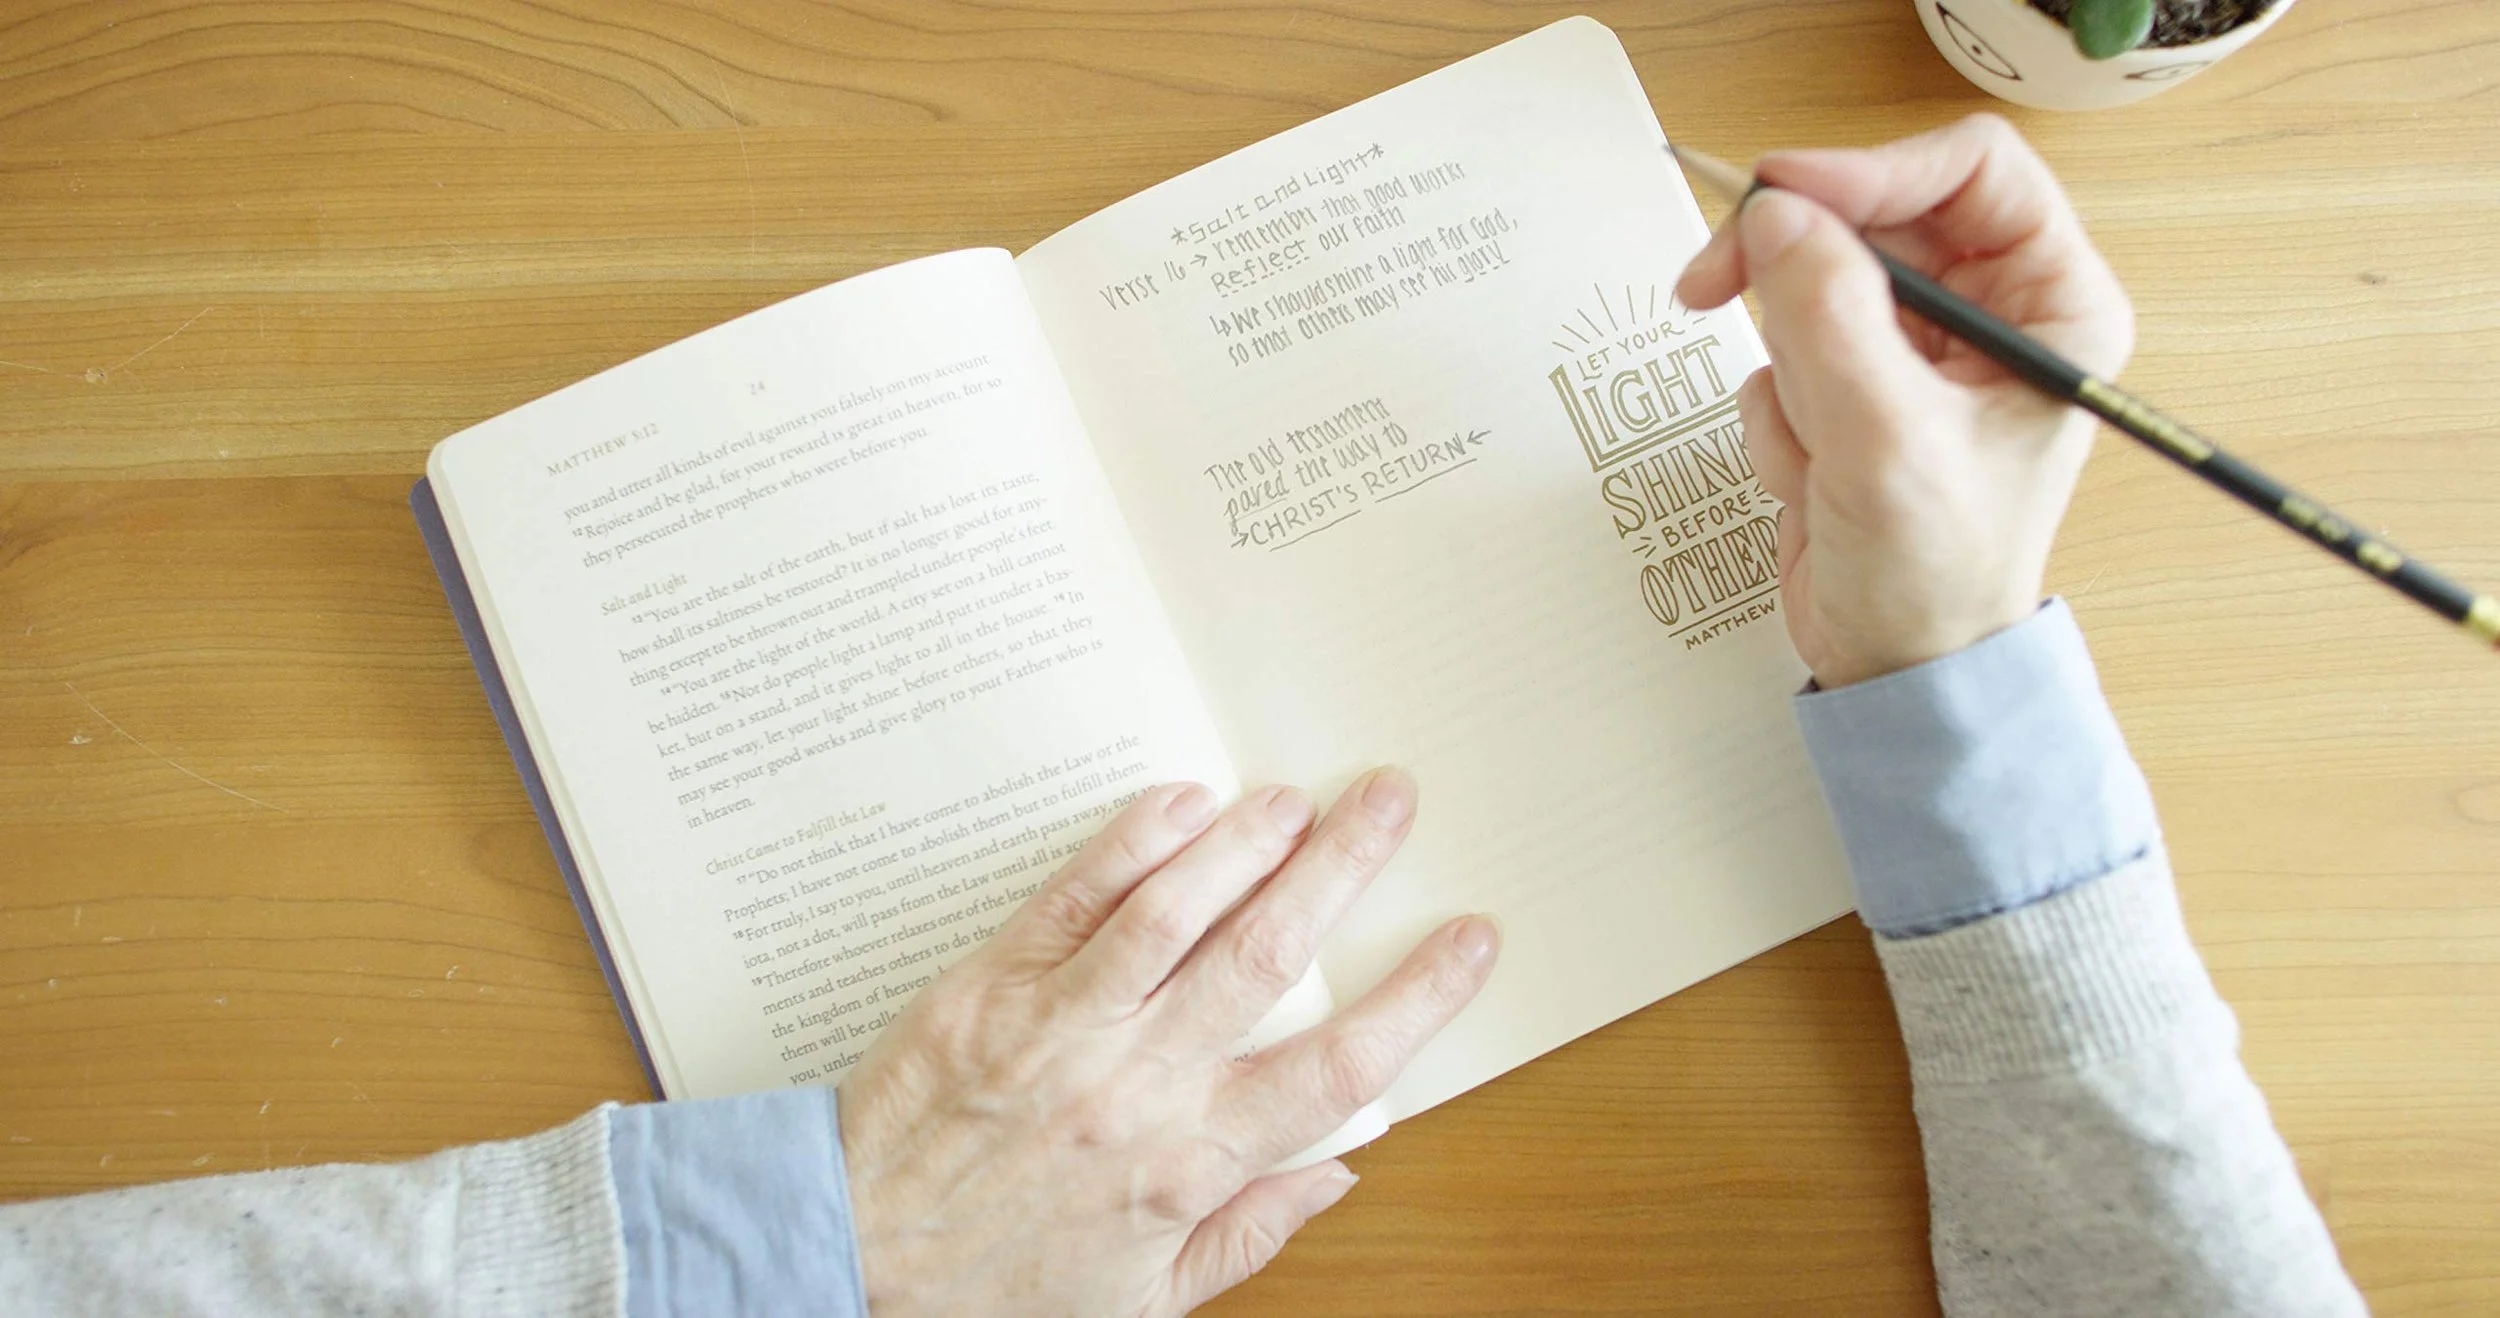 MATTHEW 5:12
24
you and utter all kinds of evil against you falsely on my account
¹²Rejoice and be glad, for your reward is great in heaven, for so
they persecuted the prophets who were before you.
Salt and Light
¹³"You are the salt of the earth, but if salt has lost its taste,
how shall its saltiness be restored? It is no longer good for any-
thing except to be thrown out and trampled under people's feet.
¹⁴"You are the light of the world. A city set on a hill cannot
be hidden. ¹⁵Nor do people light a lamp and put it under a bas-
ket, but on a stand, and it gives light to all in the house. ¹⁶In
the same way, let your light shine before others, so that they
may see your good works and give glory to your Father who is
in heaven.
Christ Came to Fulfill the Law
¹⁷"Do not think that I have come to abolish the Law or the
Prophets; I have not come to abolish them but to fulfill them.
¹⁸For truly, I say to you, until heaven and earth pass away, not an
iota, not a dot, will pass from the Law until all is
¹⁹Therefore whoever relaxes one of the least
ments and teaches others to do the
the kingdom of heaven,
them will be
you,
*Salt and Light*
Verse 16 → remember that good works
Reflect our faith
↳ We should shine a light for God,
so that others may see his glory
The old testament
paved the way to
→CHRIST'S RETURN←
LET YOUR
LIGHT
SHINE
BEFORE
OTHER
MATTHEW